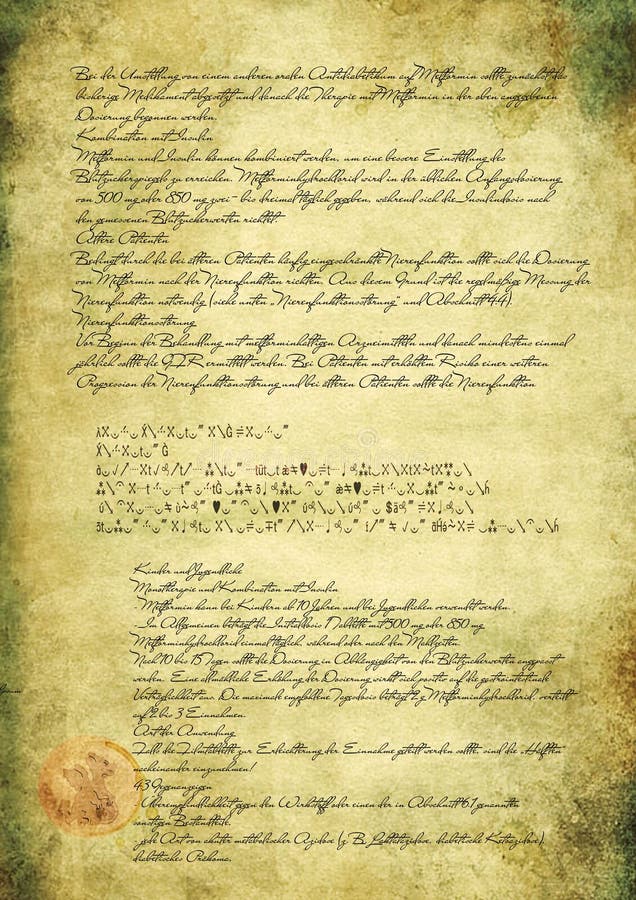 Bei der Umstellung von einem anderen oralen Antidiabetikum auf Metformin sollte zunächst das
bisherige Medikament abgesetzt und danach die Therapie mit Metformin in der oben angegebenen
Dosierung begonnen werden.
Kombination mit Insulin
Metformin und Insulin können kombiniert werden, um eine bessere Einstellung des
Blutzuckerspiegels zu erreichen. Metforminhydrochlorid wird in der üblichen Anfangsdosierung
von 500 mg oder 850 mg zwei- bis dreimal täglich gegeben, während sich die Insulindosis nach
den gemessenen Blutzuckerwerten richtet.
Ältere Patienten
Bedingt durch die bei älteren Patienten häufig eingeschränkte Nierenfunktion sollte sich die Dosierung
von Metformin nach der Nierenfunktion richten. Aus diesem Grund ist die regelmäßige Messung der
Nierenfunktion notwendig (siehe unten „Nierenfunktionsstörung“ und Abschnitt 4.4).
Nierenfunktionsstörung
Vor Beginn der Behandlung mit metforminhaltigen Arzneimitteln und danach mindestens einmal
jährlich sollte die GFR ermittelt werden. Bei Patienten mit erhöhtem Risiko einer weiteren
Progression der Nierenfunktionsstörung und bei älteren Patienten sollte die Nierenfunktion
Kinder und Jugendliche
Monotherapie und Kombination mit Insulin
- Metformin kann bei Kindern ab 10 Jahren und bei Jugendlichen verwendet werden.
- Im Allgemeinen beträgt die Initialdosis 1 Tablette mit 500 mg oder 850 mg
Metforminhydrochlorid einmal täglich, während oder nach den Mahlzeiten.
Nach 10 bis 15 Tagen sollte die Dosierung in Abhängigkeit von den Blutzuckerwerten angepasst
werden. Eine allmähliche Erhöhung der Dosierung wirkt sich positiv auf die gastrointestinale
Verträglichkeit aus. Die maximale empfohlene Tagesdosis beträgt 2 g Metforminhydrochlorid, verteilt
auf 2 bis 3 Einnahmen.
Art der Anwendung
Falls die Filmtablette zur Erleichterung der Einnahme geteilt werden sollte, sind die „Hälften
nacheinander einzunehmen!
4.3 Gegenanzeigen
Überempfindlichkeit gegen den Wirkstoff oder einen der in Abschnitt 6.1 genannten
sonstigen Bestandteile.
jede Art von akuter metabolischer Azidose (z. B. Laktatazidose, diabetische Ketoazidose),
diabetisches Präkoma.